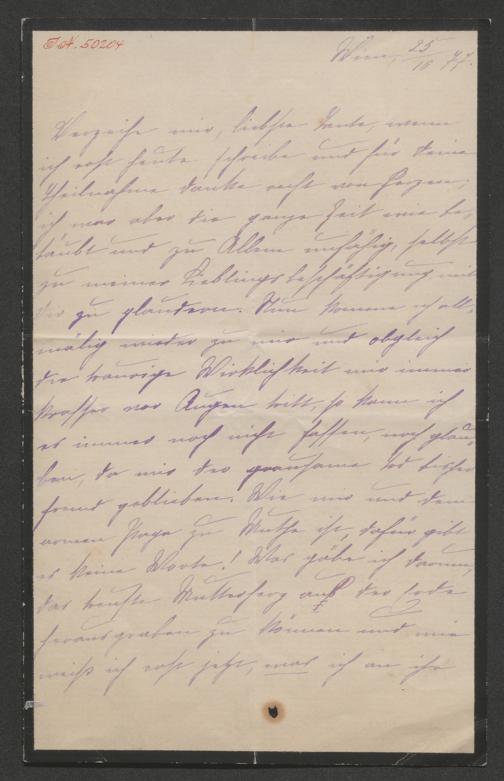 I.N. 50204
Wien, 25/10 77.
Verzeihe mir, liebste Tante, wenn
ich erst heute schreibe und für Deine
Theilnahme danke recht von Herzen,
ich war aber die ganze Zeit wie be-
täubt und zu Allem unfähig, selbst
zu meiner Lieblingsbeschäftigung mit
Dir zu plaudern. Nun komme ich all-
mälig wieder zu mir und obgleich
die traurige Wirklichkeit mir immer
krasser vor Augen tritt, so kann ich
es immer noch nicht fassen, noch glau-
ben, da mir der grausame Tod bisher
fremd geblieben. Wie mir und dem
armen Papa zu Muthe ist, dafür gibt
es keine Worte! Was gäbe ich darum,
das treuste Mutterherz aus der Erde
herausgraben zu können und wie
weiß ich erst jetzt, was ich an ihr